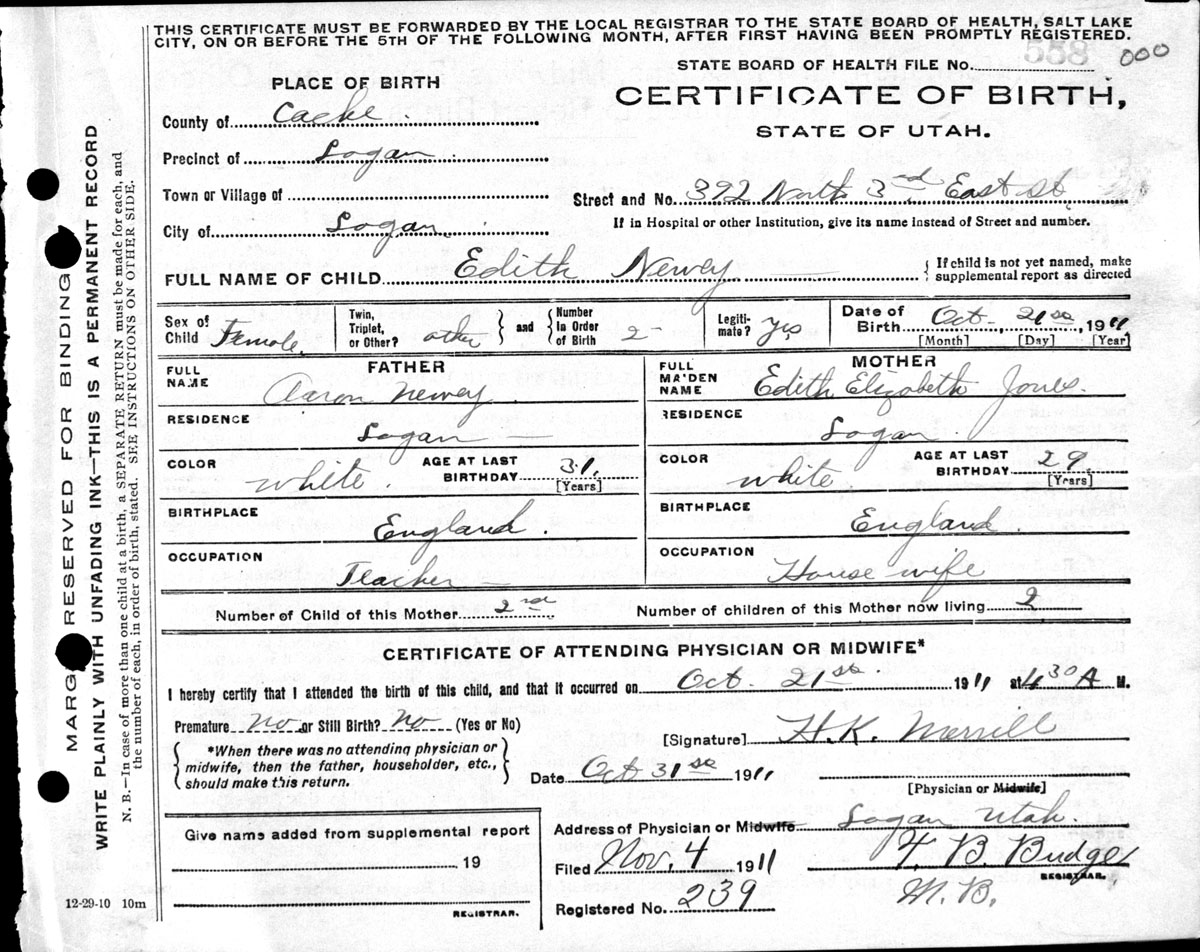 THIS CERTIFICATE MUST BE FORWARDED BY THE LOCAL REGISTRAR TO THE STATE BOARD OF HEALTH, SALT LAKE
CITY, ON OR BEFORE THE 5TH OF THE FOLLOWING MONTH, AFTER FIRST HAVING BEEN PROMPTLY REGISTERED.
STATE BOARD OF HEALTH FILE No. 558 000
PLACE OF BIRTH
CERTIFICATE OF BIRTH,
STATE OF UTAH.
County of Cache
Precinct of Logan
Town or Village of
Street and No. 392 North 3rd East St.
If in Hospital or other Institution, give its name instead of Street and number.
City of Logan
FULL NAME OF CHILD Edith Newey
If child is not yet named, make
supplemental report as directed
Sex of Child Female
Twin, Triplet, or Other? other and Number in Order of Birth 2
Legiti-mate? Yes
Date of Birth Oct 21st 1911
[Month] [Day] [Year]
FATHER
FULL NAME Aaron Newey
RESIDENCE Logan
COLOR White
AGE AT LAST BIRTHDAY 31 [Years]
BIRTHPLACE England
OCCUPATION Teacher
MOTHER
FULL MAIDEN NAME Edith Elizabeth Jones
RESIDENCE Logan
COLOR White
AGE AT LAST BIRTHDAY 29 [Years]
BIRTHPLACE England
OCCUPATION House wife
Number of Child of this Mother 2nd Number of children of this Mother now living 2
CERTIFICATE OF ATTENDING PHYSICIAN OR MIDWIFE*
I hereby certify that I attended the birth of this child, and that it occurred on Oct. 21st 1911 at 4 30 A M.
Premature No or Still Birth? No (Yes or No)
*When there was no attending physician or
midwife, then the father, householder, etc.,
should make this return.
[Signature] H.K. Merrill
Date Oct 31st 1911
[Physician or Midwife]
Give name added from supplemental report
19
REGISTRAR.
Address of Physician or Midwife Logan Utah.
Filed Nov. 4 1911 F. B. Budge
REGISTRAR.
Registered No. 239 M. B.
12-29-10 10m
MARGIN RESERVED FOR BINDING
WRITE PLAINLY WITH UNFADING INK—THIS IS A PERMANENT RECORD
N. B.—In case of more than one child at a birth, a SEPARATE RETURN must be made for each, and
the number of each, in order of birth, stated. SEE INSTRUCTIONS ON OTHER SIDE.